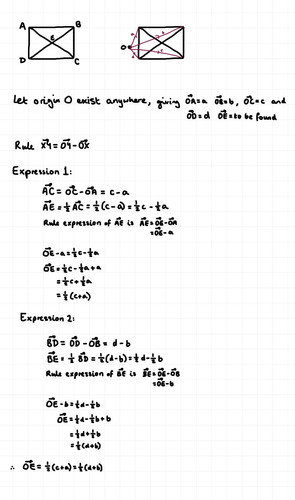 A B
E
D C
O a b c d
Let origin O exist anywhere, giving OA⃗=a OB⃗=b, OC⃗=c and
OD⃗=d OE⃗=to be found
Rule XY⃗=OY⃗-OX⃗
Expression 1:
AC⃗ = OC⃗-OA⃗ = c-a
AE⃗ = ½ AC⃗ = ½(c-a) = ½c-½a
Rule expression of AE⃗ is AE⃗=OE⃗-OA⃗
=OE⃗-a
OE⃗-a=½c-½a
OE⃗=½c-½a+a
=½c+½a
=½(c+a)
Expression 2:
BD⃗ = OD⃗ - OB⃗ = d-b
BE⃗ = ½ BD⃗ = ½(d-b) = ½d-½b
Rule expression of BE⃗ is BE⃗=OE⃗-OB⃗
=OE⃗-b
OE⃗-b=½d-½b
OE⃗=½d-½b+b
=½d+½b
=½(d+b)
∴ OE⃗ = ½(c+a)=½(d+b)